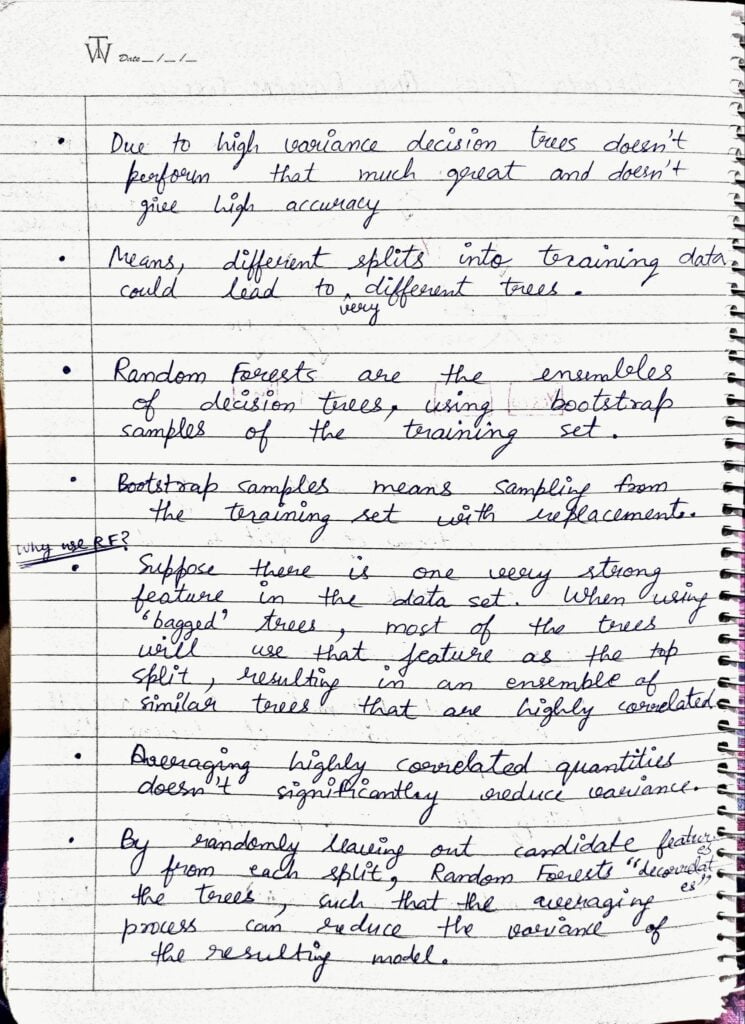 TW Date _ / _ / _
• Due to high variance decision trees doesn't
perform that much great and doesn't
give high accuracy
• Means, different splits into training data
could lead to very different trees.
• Random Forests are the ensembles
of decision trees, using bootstrap
samples of the training set.
• Bootstrap samples means sampling from
the training set with replacements.
Why use RF?
• Suppose there is one very strong
feature in the data set. When using
'bagged' trees, most of the trees
will use that feature as the top
split, resulting in an ensemble of
similar trees that are highly correlated
• Averaging highly correlated quantities
doesn't significantly reduce variance.
• By randomly leaving out candidate features
from each split, Random Forests "decorrelates"
the trees, such that the averaging
process can reduce the variance of
the resulting model.